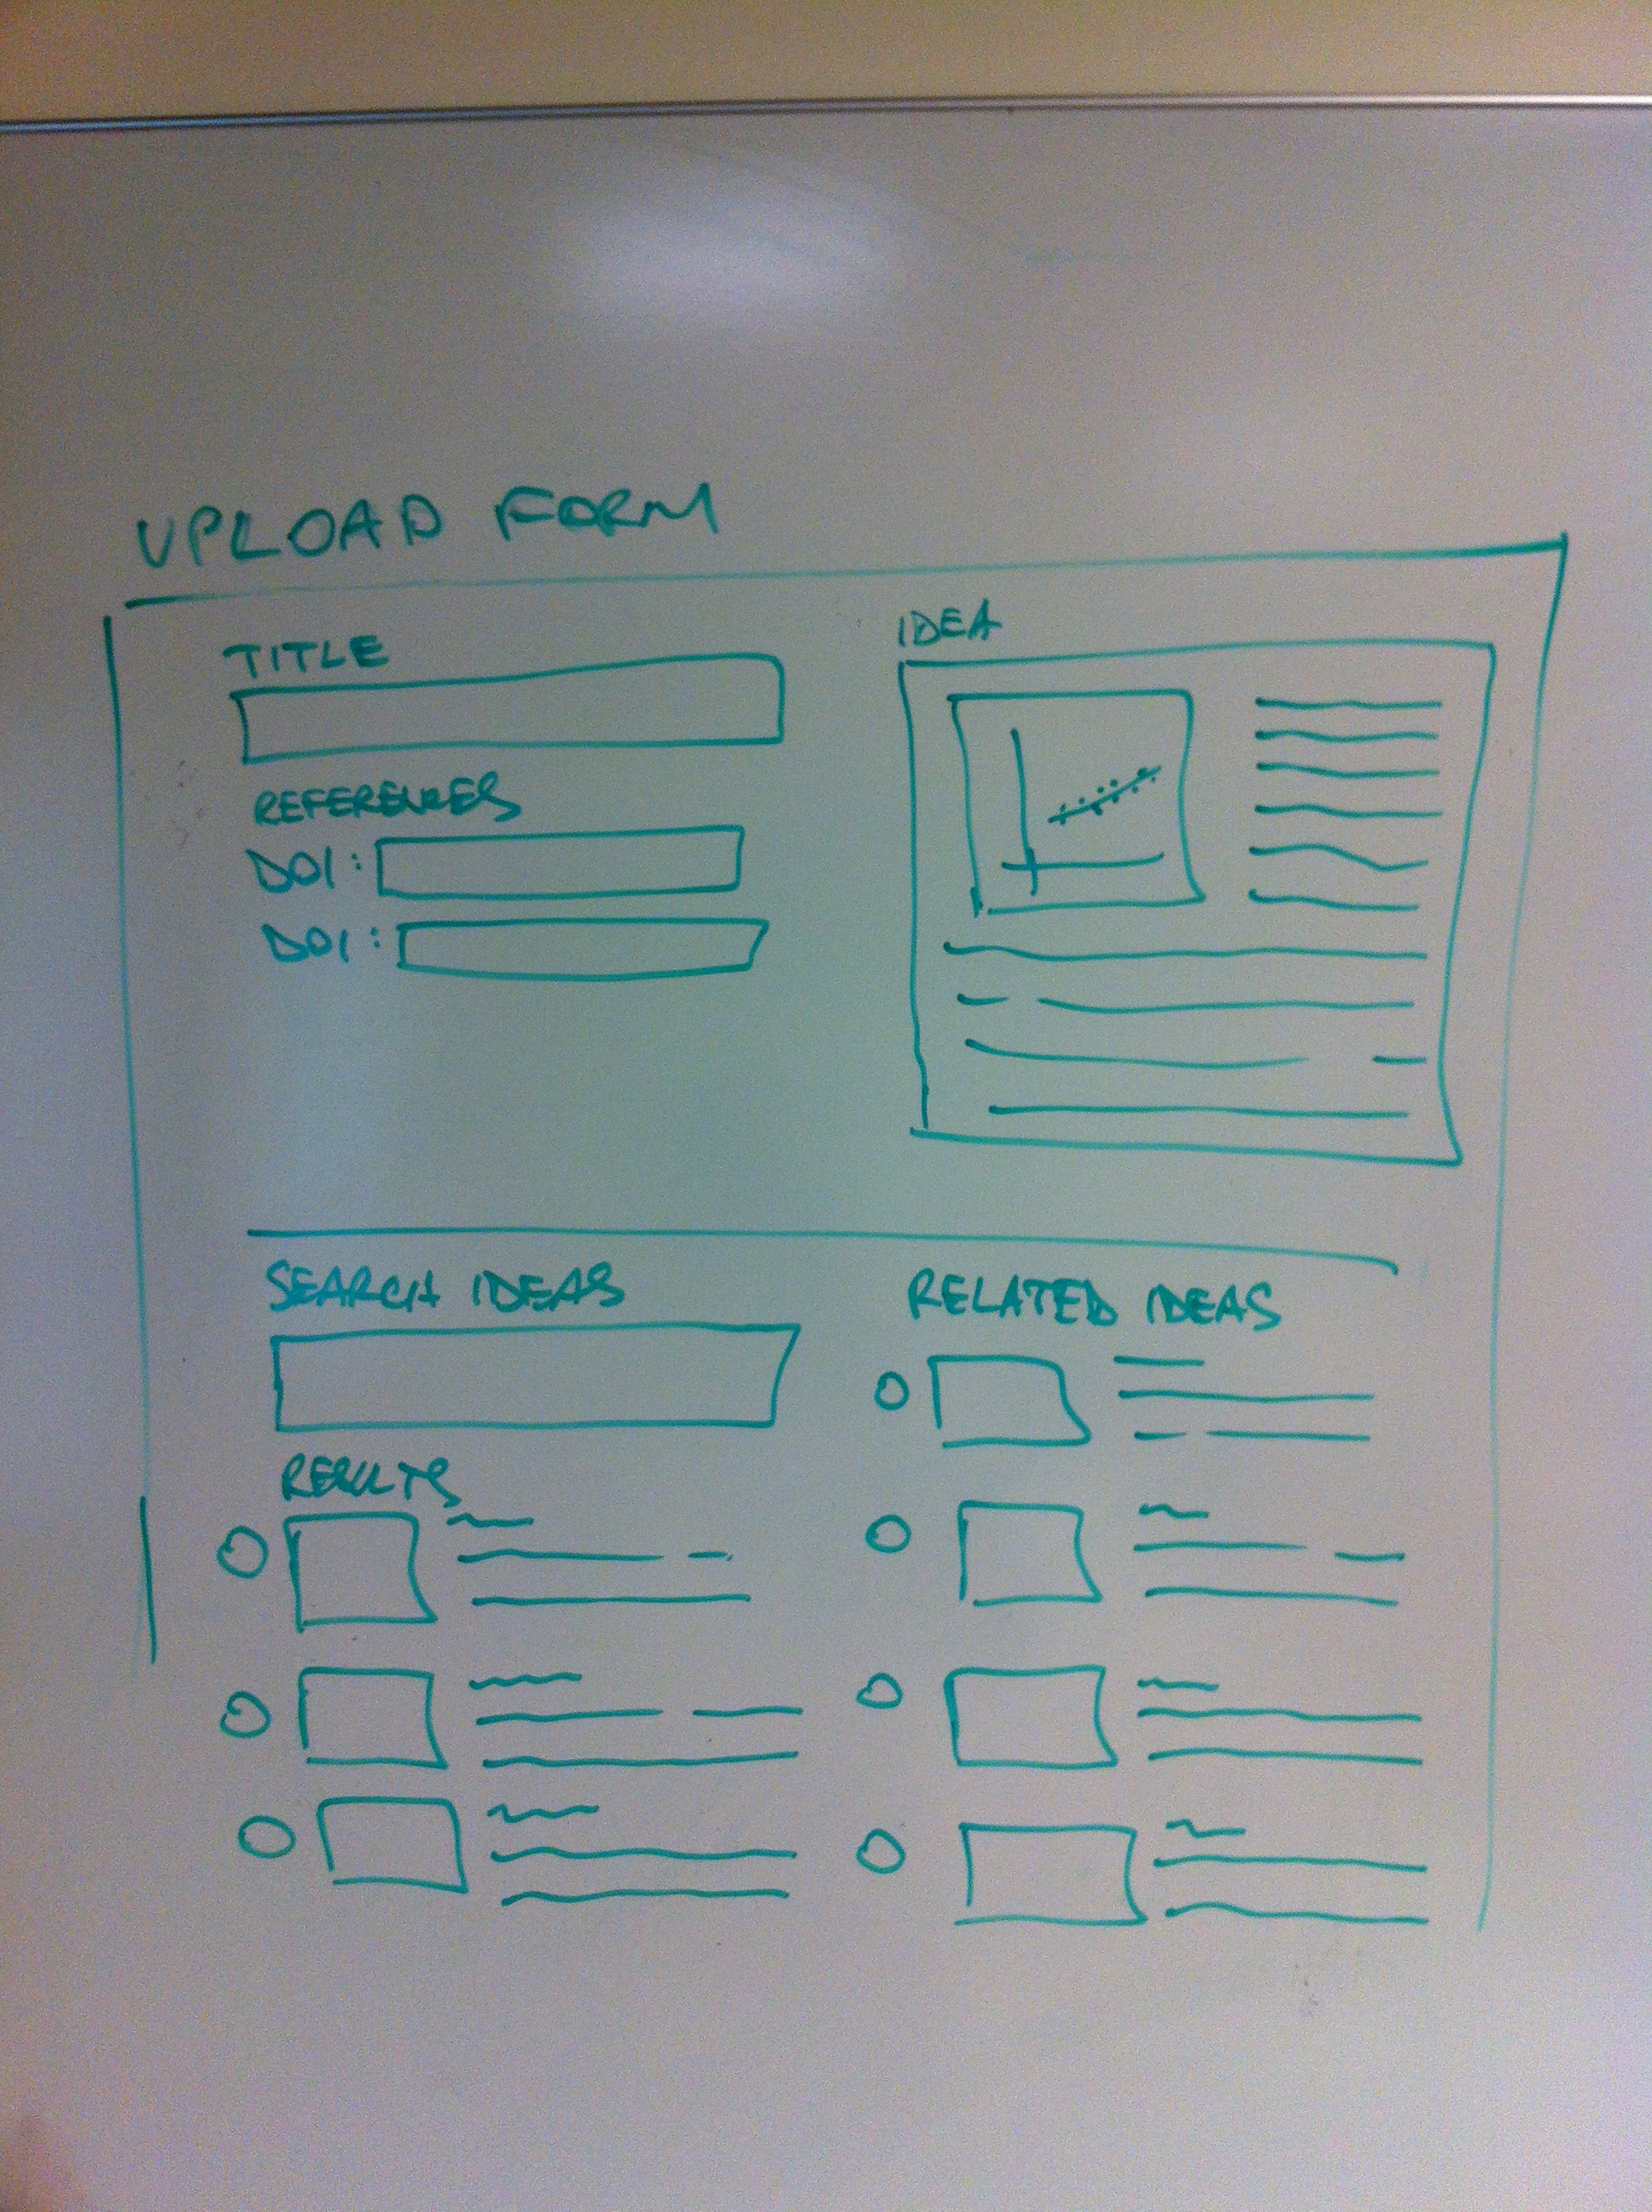 UPLOAD FORM
TITLE
REFERENCES
DOI:
DOI:
IDEA
SEARCH IDEAS
RESULTS
RELATED IDEAS